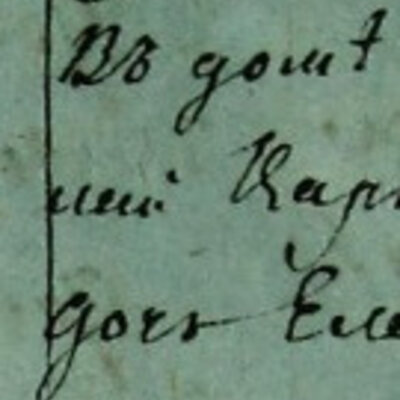 Въ домѣ
ній Кар
дочь Еле